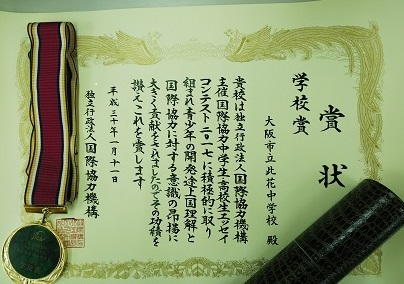 賞状
学校賞
大阪市立此花中学校 殿
貴校は独立行政法人国際協力機構
主催国際協力中学生・高校生エッセイ
コンテスト二〇一七に積極的に取り
組まれ青少年の開発途上国理解と
国際協力に対する意識の昂揚に
大きく貢献をされましたのでその功績を
讃えこれを賞します
平成三十年一月十一日
独立行政法人国際協力機構